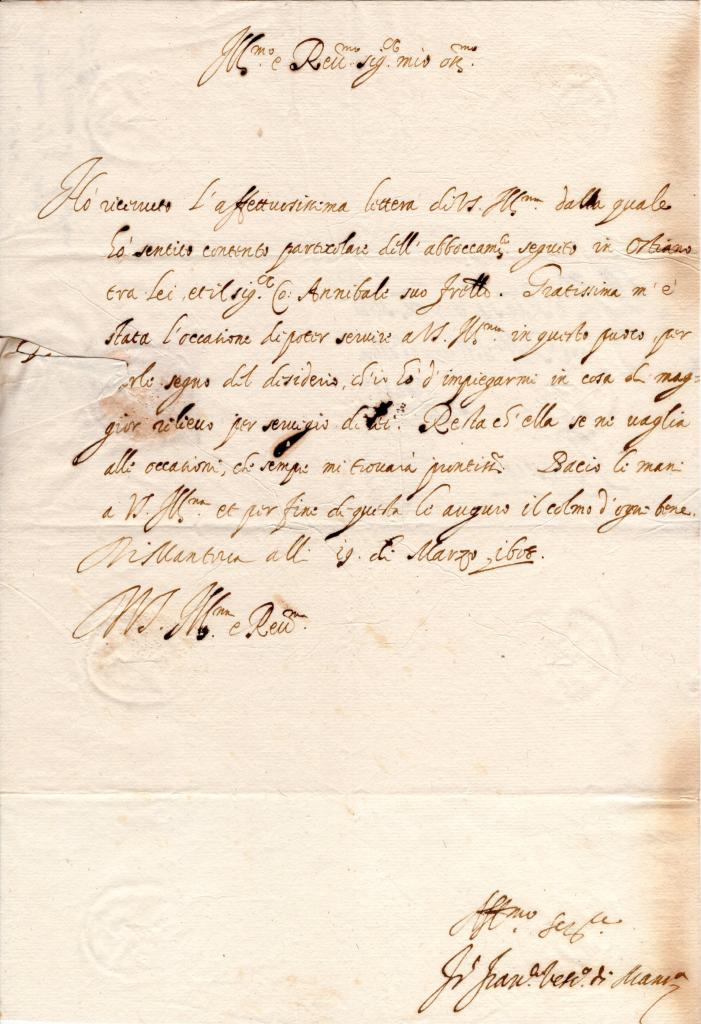 Ill.mo e Reu.mo sig.r mio oss.mo
Hò riceuuto l'affettuosissima lettera di V.S. Ill.ma dalla quale
hò sentito contento particolare dell'abboccam.to seguito in Ostiano
tra lei, et il sig.r Co: Annibale suo frello. Gratissima m'è
stata l'occasione di poter seruire a V.S. Ill.ma in questo puoco, per
segno del desiderio, ch'io hò d'impiegarmi in cosa di mag=
gior rilieuo per seruigio di lei. Resta ch'ella se ne vaglia
alle occasioni, che sempre mi trouarà prontiss.o Bacio le mani
a V.S. Ill.ma et per fine di questa le auguro il colmo d'ogni bene.
Di Mantoua alli 19. di Marzo 1608.
Di V.S. Ill.ma e Reu.ma
Aff.mo ser.re
Fr. Fran.co Vesc.o di Mant.a